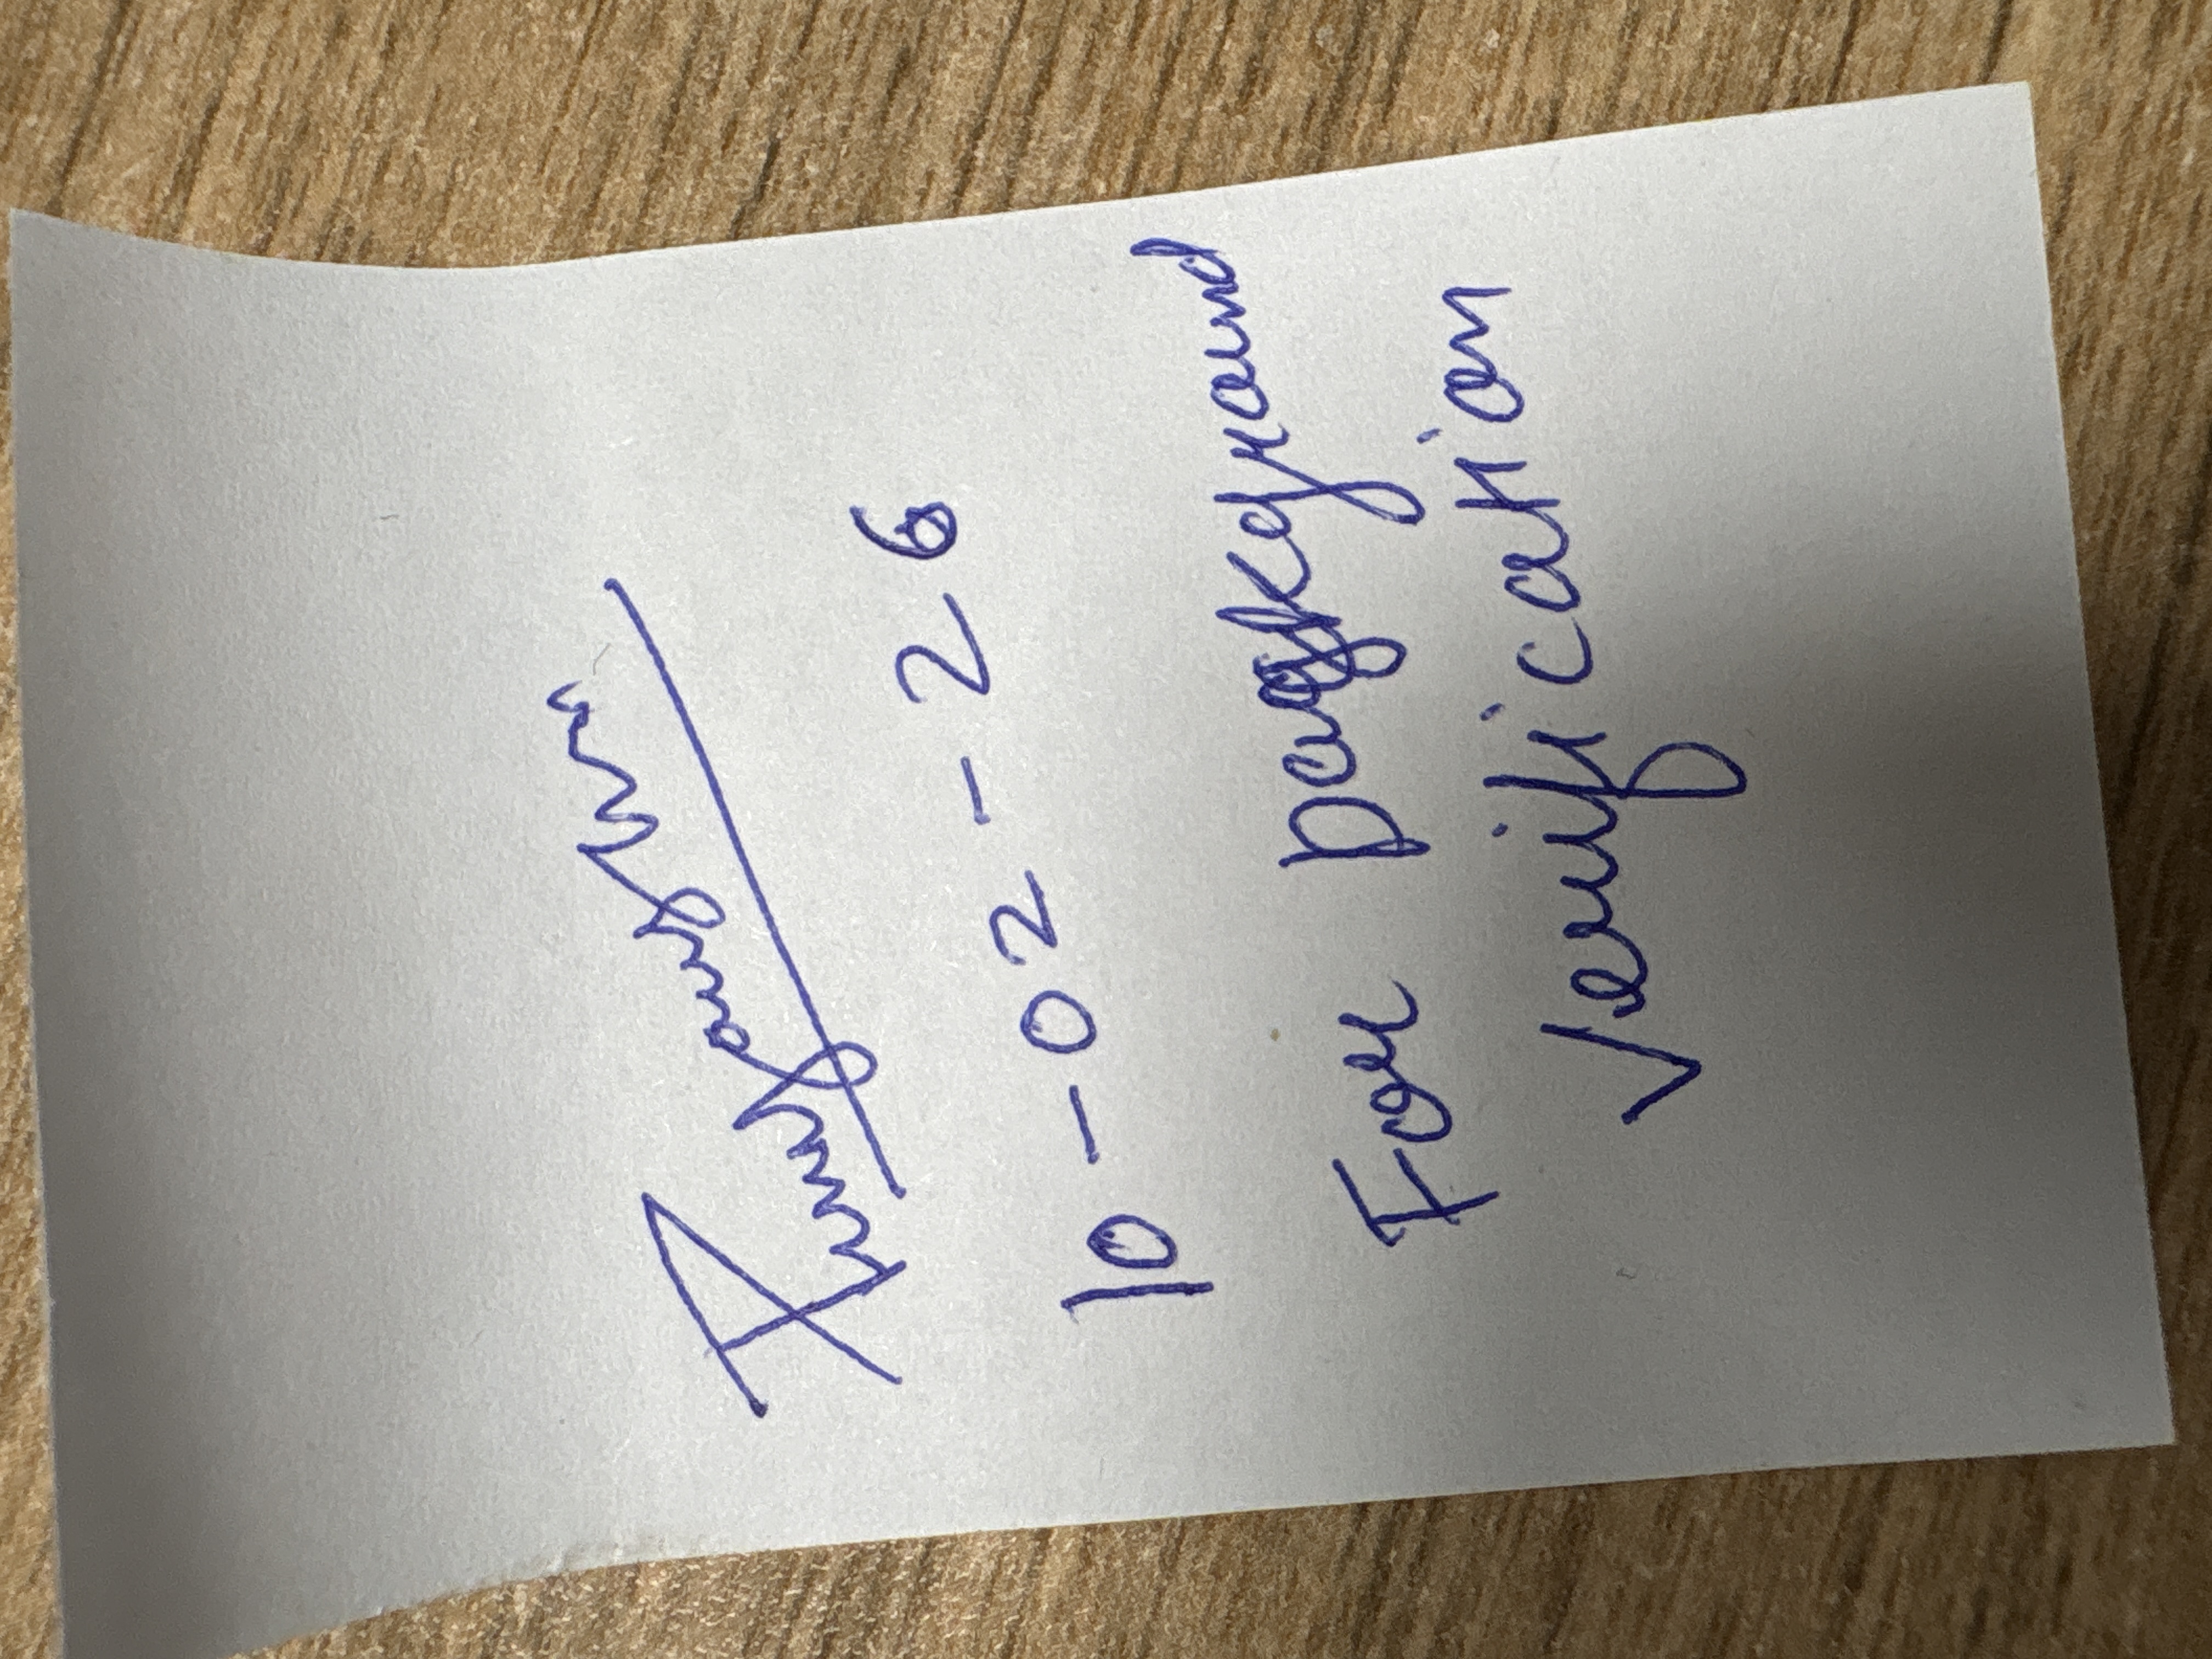 10-02-26
For background
verification